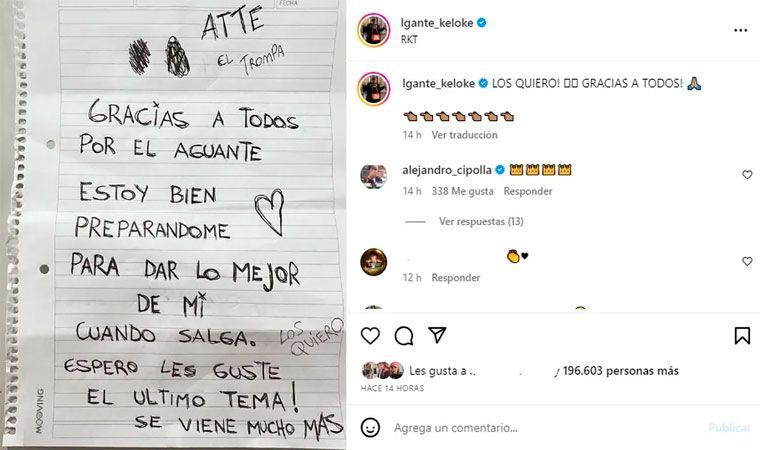 FECHA
ATTE
EL TROMPA
GRACIAS A TODOS
POR EL AGUANTE
ESTOY BIEN
PREPARANDOME
PARA DAR LO MEJOR
DE MI
CUANDO SALGA.
LOS QUIERO
ESPERO LES GUSTE
EL ULTIMO TEMA!
SE VIENE MUCHO MAS
MOOVING
lgante_keloke
RKT
lgante_keloke LOS QUIERO! GRACIAS A TODOS! 🙏🏽
👈🏽👈🏽👈🏽👈🏽👈🏽👈🏽👈🏽
14 h Ver traducción
alejandro_cipolla 👑👑👑👑
14 h 338 Me gusta Responder
Ver respuestas (13)
👏🖤
12 h Responder
Les gusta a : . / 196.603 personas más
HACE 14 HORAS
Agrega un comentario...
Publicar